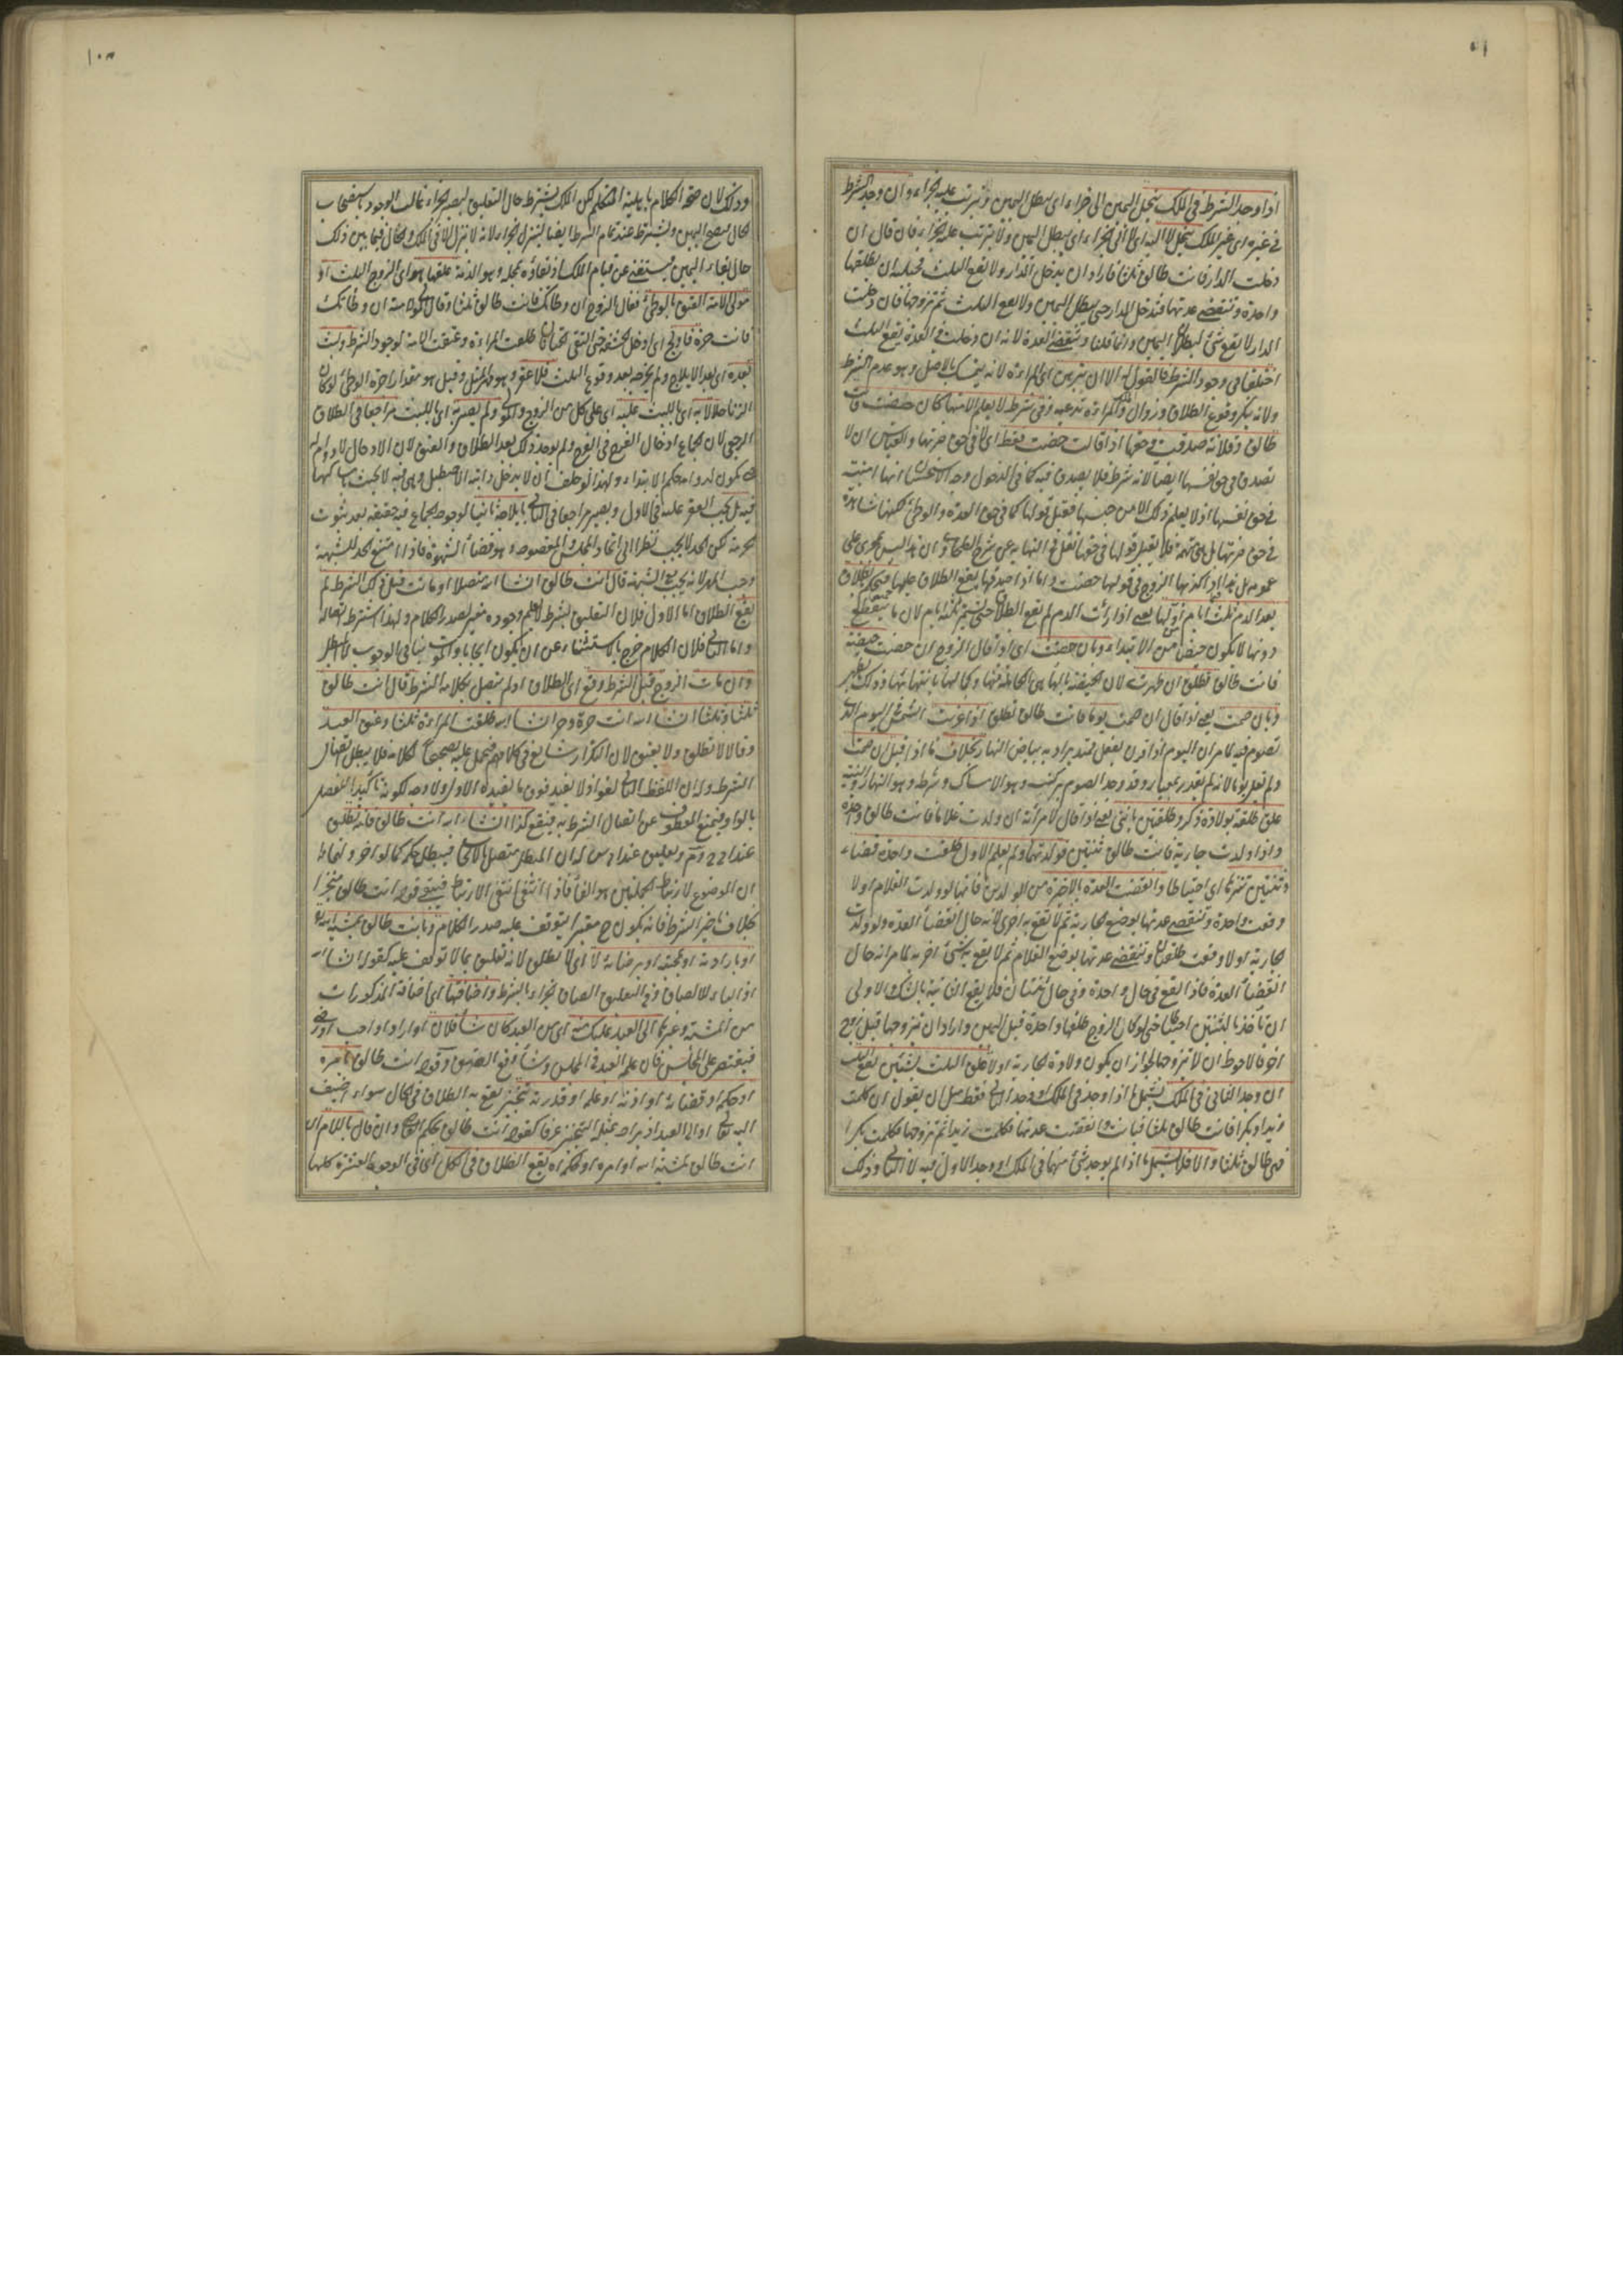 اذا وجد الشرط في الملك ينحل اليمين الى جزاء اي يبطل اليمين ويترتب عليه الجزاء وان وجد الشرط
في غيره اي غير الملك ينحل لا اليه اي لا الى الجزاء اي يبطل اليمين ولا يترتب عليه الجزاء فان قال ان
دخلت الدار فانت طالق ثلثا فاراد ان يدخل الدار ولا يقع الثلث فحيلته ان يطلقها
واحدة وتنقضي عدتها فتدخل الدار حتى يبطل اليمين ولا يقع الثلث ثم تزوجها فان دخلت
الدار لا يقع شئ لبطلان اليمين وانما قلنا وتنقضي العدة لانه ان دخلت في العدة يقع الثلث
اختلفا في وجود الشرط فالقول له الا ان تبرهن اي المراءة لانه يتمسك بالاصل وهو عدم الشرط
ولانه ينكر وقوع الطلاق وزوال الملك والمراءة تدعيه وفي شرط لا يعلم الا منها كان حضت فانت
طالق وفلانة صدقت في حقها اذا قالت حضت فقط اي لا في حق ضرتها والقياس ان لا
تصدق في حق نفسها ايضا لانه شرط فلا يصدق فيه كما في الدخول وجه الاستحسان انها امينة
في حق نفسها اذ لا يعلم ذلك الا من جهتها فقبل قولها كما في حق العدة والوطئ لكنها شاهدة
في حق ضرتها بل هي متهمة فلا يقبل قولها في حقها نقل في النهاية عن شرح الطحاوي ان هذا ليس بمجرى على
عمومه بل هذا اذا كذبها الزوج في قولها حضت واما اذا صدقها يقع الطلاق عليها فيحكم بالطلاق
بعد الدم ثلثة ايام من اولها يعني اذا رأت الدم لم يقع الطلاق حتى يتم ثلثة ايام لان ما ينقطع
دونها لا يكون حيضا من الابتداء وبان حضت اي اذا قال الزوج ان حضت حيضة
فانت طالق تطلق ان طهرت لان الحيضة بالهاء هي الكاملة منها وكمالها بانتهائها وذلك بالطهر
وبان صمت يعني لو قال ان صمت يوما فانت طالق تطلق اذا غربت الشمس اليوم الذي
تصوم فيه لما مر ان اليوم اذا قرن بفعل ممتد يراد به بياض النهار بخلاف ما اذا قيل ان صمت
ولم يقل يوما لانه لم يقدر بمعيار وقد وجد الصوم بركنه وهو الامساك وشرطه وهو النهار والنية
علق طلقة بولادة ذكر وطلقتين بانثى يعني لو قال لامرأته ان ولدت غلاما فانت طالق واحدة
واذا ولدت جارية فانت طالق ثنتين فولدتهما ولم يعلم الاول طلقت واحدة قضاء
وثنتين تنزها اي احتياطا وانقضت العدة بالاخيرة من الولدين فانها لو ولدت الغلام اولا
وقعت واحدة وتنقضي عدتها بوضع الجارية ثم لا تقع به اخرى لانه حال انقضأ العدة ولو ولدت
الجارية اولا وقعت طلقتان وتنقضي عدتها بوضع الغلام ثم لا يقع به شئ آخر به لما مر انه حال
انقضأ العدة فاذا يقع في حال واحدة وفي حال ثنتان فلا يقع الثانية بالشك والاولى
ان تأخذ بالثنتين احتياطا حتى لو كان الزوج طلقها واحدة قبل اليمين واراد ان تزوجها قبل زوج
آخر فالاحوط ان لا تزوجها لجواز ان يكون ولادة الجارية اولا علق الثلث بشيئين يقع الثلث
ان وجد الثاني في الملك يشمل ما اذا وجد في الملك او وجد الثاني فقط مثل ان يقول ان كلمت
زيدا وبكرا فانت طالق ثلثا فبانت وانقضت عدتها فكلمت زيدا ثم تزوجها فكلمت بكرا
فهي طالق ثلثا والا فلا يشمل ما اذا لم يوجد شئ منهما في الملك او وجد الاول فيه لا الثاني وذلك
وذلك لان صحة الكلام باهلية المتكلم لكن الملك يشترط حال التعليق ليصير الجزاء غالب الوجود باستصحاب
الحال فيصح اليمين ويشترط عند تمام الشرط ايضا لينزل الجزاء لانه لا ينزل الا في الملك والحال فيما بين ذلك
حال بقاء اليمين فيستغنى عن قيام الملك اذ بقاؤه بمحله وهو الذمة علقها هو اي الزوج الثلث او
مولى الامة العتق بالوطئ فقال الزوج ان وطأتك فانت طالق ثلثا وقال المولى لامته ان وطأتك
فانت حرة فاولج اي ادخل الحشفة حتى التقى الختانان طلقت المراءة وعتقت الامة لوجود الشرط ولبث
بعده اي بعد الايلاج ولم يخرجه بعد وقوع الثلث فلا عقر وهو مهر المثل وقيل هو مقدار اجرة الوطئ لو كان
الزنا حلالا به اي باللبث عليه اي على كل من الزوج والمولى ولم يصر به اي باللبث مراجعا في الطلاق
الرجعي لان الجماع ادخال الفرج في الفرج ولم يوجد ذلك بعد الطلاق والعتق لان الادخال لا دوام له
حتى يكون لدوامه حكم الابتداء ولهذا لو حلف ان لا يدخل دابته الاصطبل وهي فيه لا يحنث بامساكها
فيه بل يجب العقر عليه في الاول ويصير مراجعا في الثاني بايلاجه ثانيا لوجود الجماع فيه حقيقة بعد ثبوت
الحرمة لكن الحد لا يجب نظرا الى اتحاد المجلس والمقصود وهو قضأ الشهوة فاذا امتنع الحد للشبهة
وجب المهر لانه يجب مع الشبهة قال انت طالق ان شاء الله متصلا او ماتت قبل ذكر الشرط لم
يقع الطلاق اما الاول فلان التعليق بشرط لا يعلم وجوده مغير لصدر الكلام ولهذا اشترط اتصاله
واما الثاني فلان الكلام خرج بالاستثناء عن ان يكون ايجابا والموت ينافي الموجب لا المبطل
وان مات الزوج قبل الشرط وقع اي الطلاق اذ لم يتصل بكلامه الشرط قال انت طالق
ثلثا وثلثا ان شاء الله او انت حرة وحر ان شاء الله طلقت المراءة ثلثا وعتق العبد
وقالا لا تطلق ولا يعتق لان التكرار شايع في كلامهم فيحمل عليه تصحيحا لكلامه فلا يبطل اتصال
الشرط وله ان اللفظ الثاني لغو اذ لا يفيد فوق ما يفيده الاول ولا وجه لكونه تأكيدا للفصل
بالواو فيمنع المعطوف عن اتصال الشرط به فيقع كذا ان شاء الله انت طالق فانه تطليق
عند ابي ح و م وتعليق عند ابي س له ان المبطل متصل بالايجاب فيبطل حكمه كما لو اخر ولهما
ان الموضوع لارتباط الجملتين هو الفأ فاذا انتفى انتفى الارتباط فيبقى قوله انت طالق منجزا
بخلاف تأخير الشرط فانه يكون ح مغيرا يتوقف عليه صدر الكلام وبانت طالق بمشية الله
او بارادته او محبته او برضائه لا اي لا تطلق لانه تعليق بما لا توقف عليه كقوله ان شاء الله
اذ الباء للالصاق وفي التعليق الصاق الجزاء بالشرط واضافتها اي اضافة المذكورات
من المشية وغيرها الى العبد تمليك منه اي من العبد كان شأ فلان او اراد او احب او رضي
فيقتصر على المجلس فان علم العبد في المجلس وشأ وقع الطلاق وقوله انت طالق بامره
او حكمه او قضائه او اذنه او علمه او قدرته تنجيز يقع به الطلاق في الحال سواء اضيف
اليه تعالى او الى العبد اذ يراد بمثله التنجيز عرفا كقوله انت طالق بحكم القاضي وان قال باللام اي
انت طالق لمشية الله او امره او لحكمه يقع الطلاق في الكل اي في الوجوه العشرة كلها